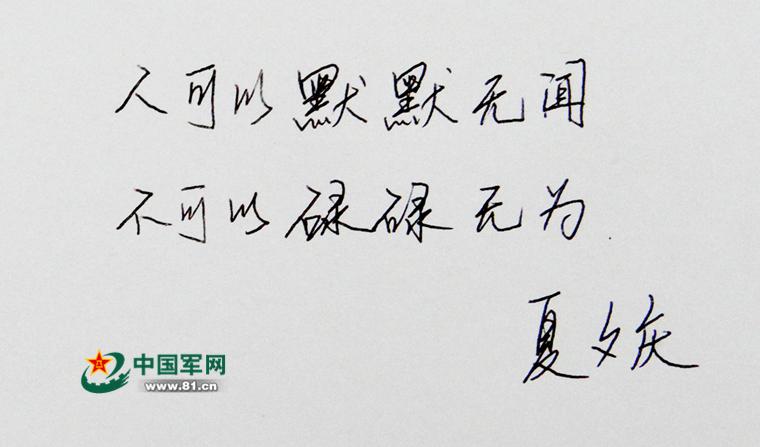 人可以默默无闻
不可以碌碌无为
夏文庆
中国军网
www.81.cn